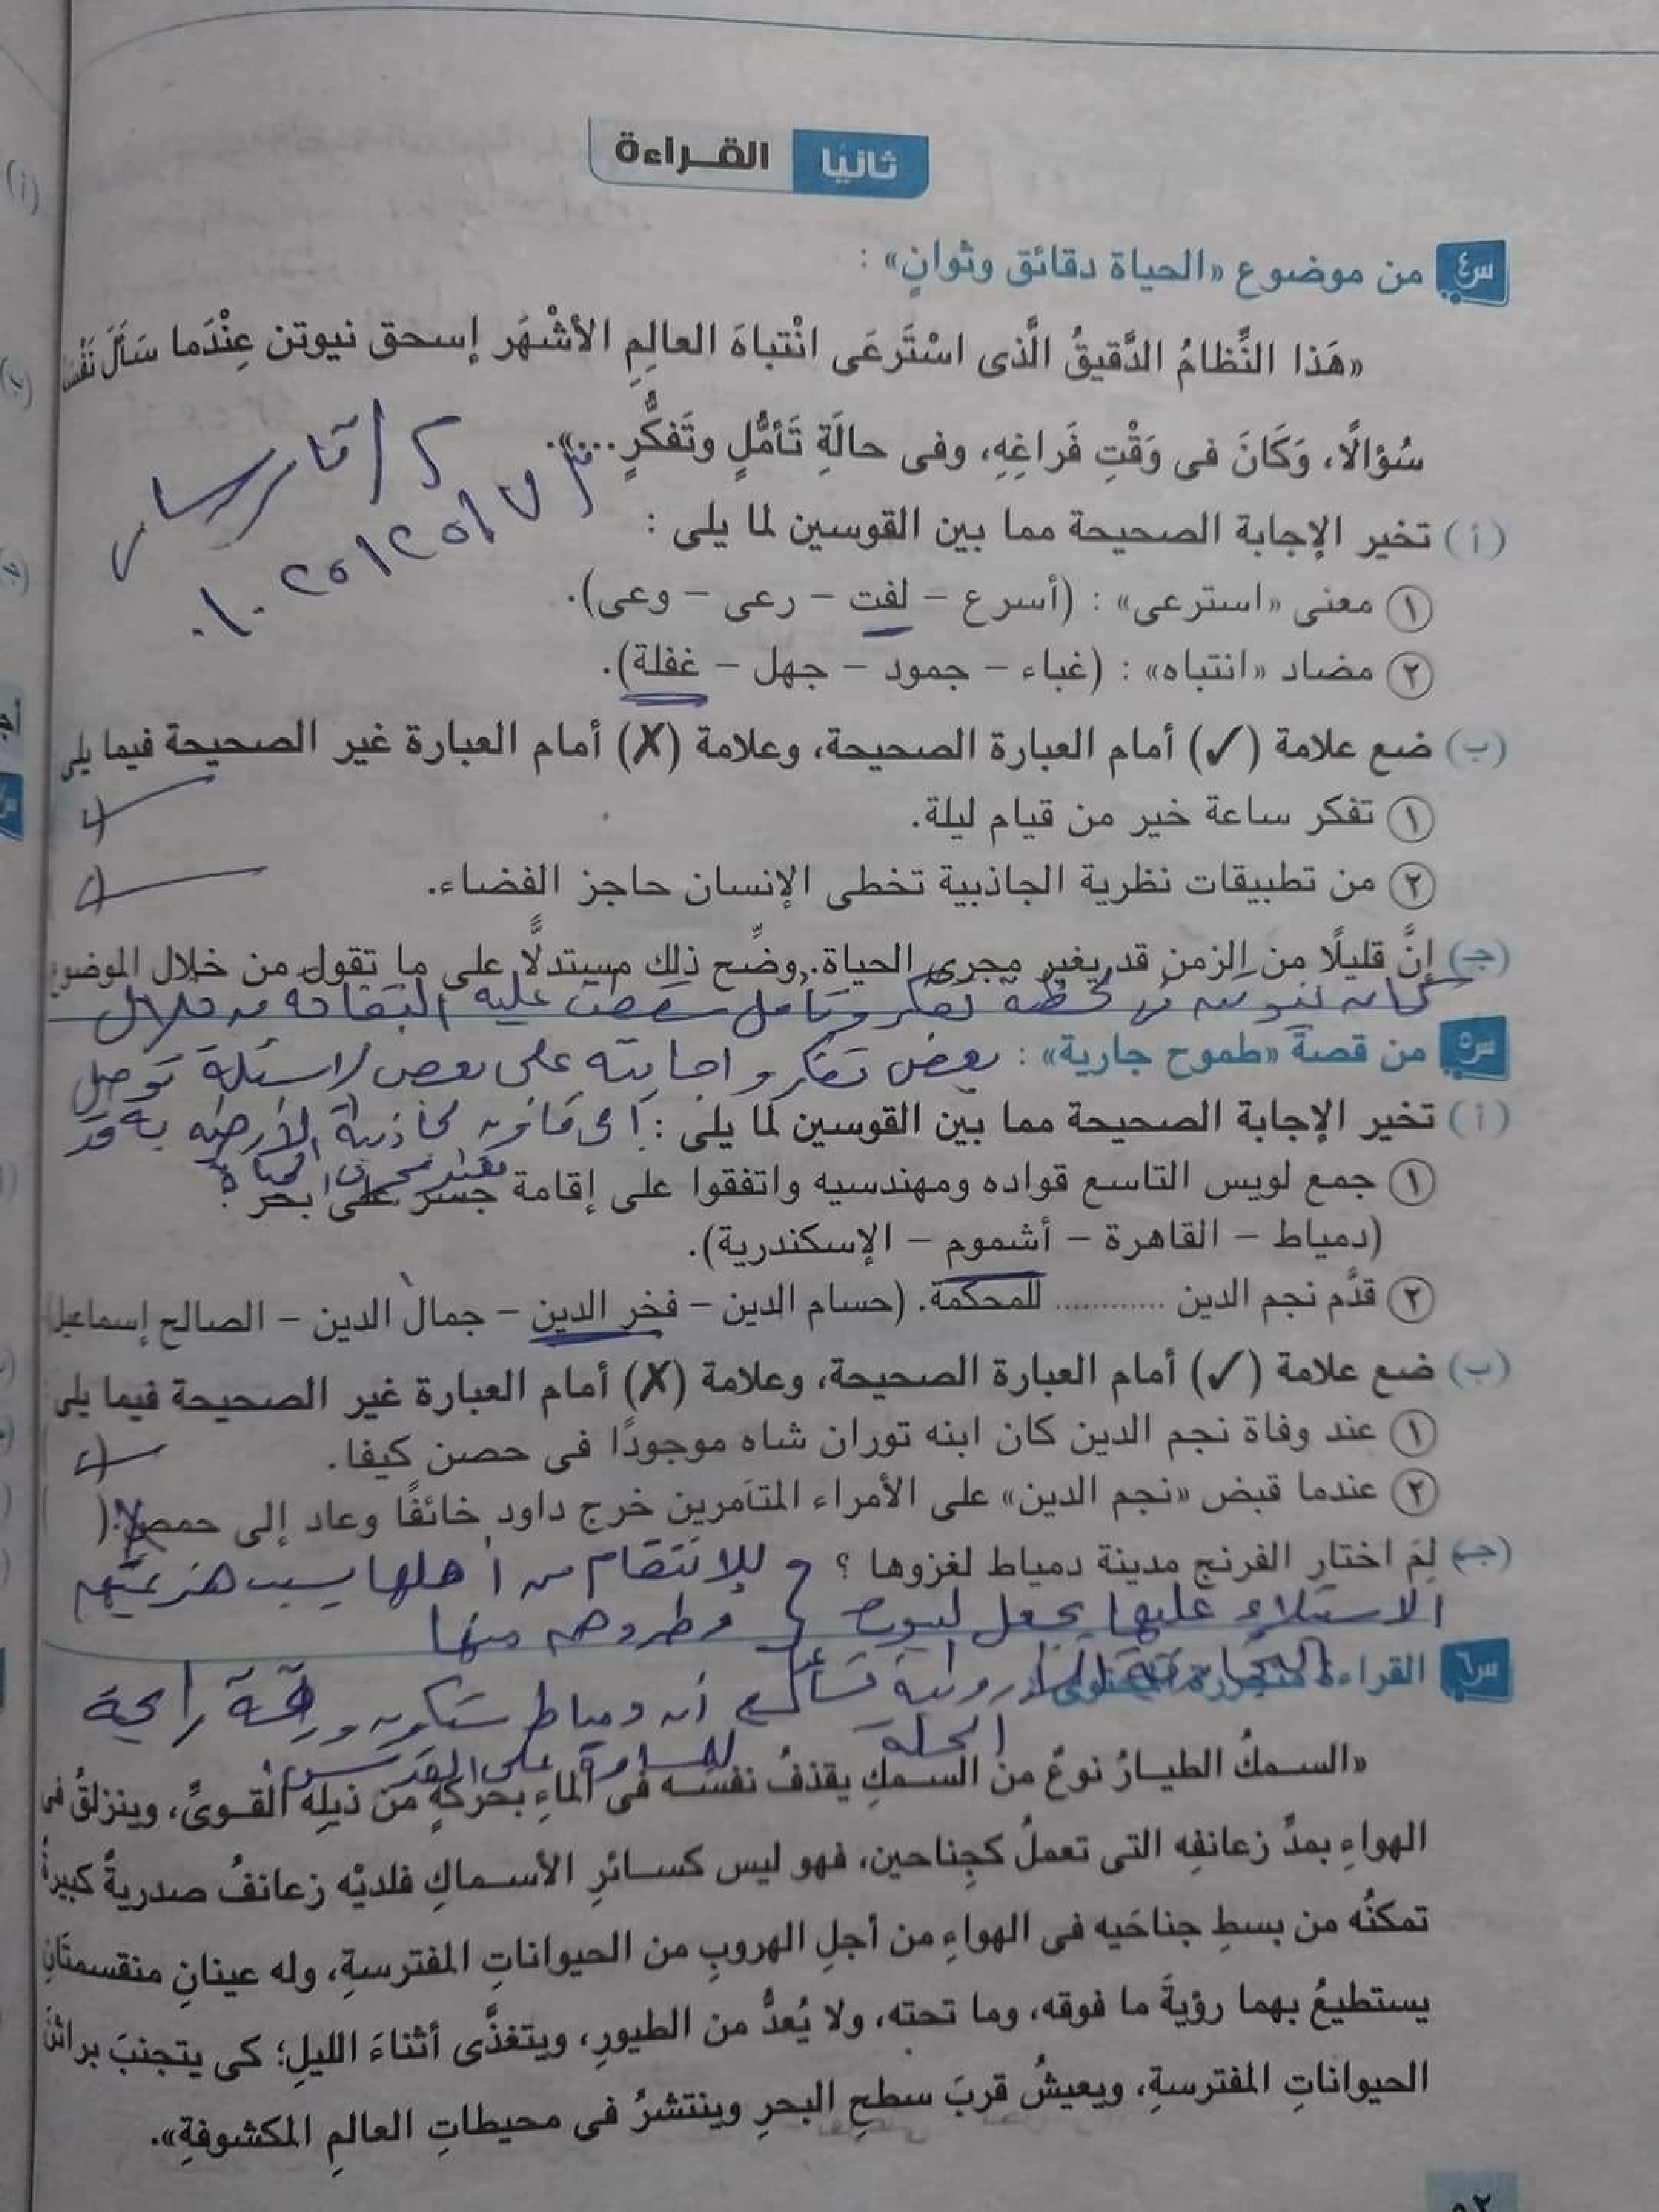 ثانيًا القراءة
س٤ من موضوع «الحياة دقائق وثوانٍ» :
«هَذا النِّظامُ الدَّقيقُ الَّذى اسْتَرعَى انْتباهَ العالِمِ الأشْهَر إسحق نيوتن عِنْدَما سَأَلَ نَفْسَ
سُؤالًا، وَكَانَ فى وَقْتِ فَراغِهِ، وفى حالَةِ تَأمُّلٍ وتَفكُّرٍ...».
(أ) تخير الإجابة الصحيحة مما بين القوسين لما يلى :
١ معنى «استرعى» : (أسرع – لفت – رعى – وعى).
٢ مضاد «انتباه» : (غباء – جمود – جهل – غفلة).
(ب) ضع علامة (✓) أمام العبارة الصحيحة، وعلامة (✗) أمام العبارة غير الصحيحة فيما يلى
١ تفكر ساعة خير من قيام ليلة.
٢ من تطبيقات نظرية الجاذبية تخطى الإنسان حاجز الفضاء.
(جـ) إنَّ قليلًا من الزمن قد يغير مجرى الحياة. وضِّح ذلك مستدلًّا على ما تقول من خلال الموضو
لحظة تفكر وتأمل سقطت عليه التفاحة من خلال
س٥ من قصة «طموح جارية» :
بعض تفكر واجابته على بعض اسئلة توصل
(أ) تخير الإجابة الصحيحة مما بين القوسين لما يلى :
الأرضية
١ جمع لويس التاسع قواده ومهندسيه واتفقوا على إقامة جسر على بحر :
(دمياط – القاهرة – أشموم – الإسكندرية).
٢ قدَّم نجم الدين ............ للمحكمة. (حسام الدين – فخر الدين – جمال الدين – الصالح إسماعيل
(ب) ضع علامة (✓) أمام العبارة الصحيحة، وعلامة (✗) أمام العبارة غير الصحيحة فيما يلى
١ عند وفاة نجم الدين كان ابنه توران شاه موجودًا فى حصن كيفا.
٢ عندما قبض «نجم الدين» على الأمراء المتآمرين خرج داود خائفًا وعاد إلى حمص.
(جـ) لِمَ اختار الفرنج مدينة دمياط لغزوها ؟ و للانتقام من أهلها بسبب هزيمتهم
الاستيلاء عليها يجعل وطردهم منها
س٦ القراءة متحررة المحتوى
أن دمياط ستكون ورقة رابحة
الحملة للمساومة على القدس
«السمكُ الطيارُ نوعٌ من السمكِ يقذفُ نفسَه فى الماءِ بحركةٍ من ذيلِه القوىِّ، وينزلقُ فى
الهواءِ بمدِّ زعانفِه التى تعملُ كجِناحين، فهو ليس كسائرِ الأسماكِ فلديْه زعانفُ صدريةٌ كبيرةٌ
تمكنُه من بسطِ جناحَيه فى الهواءِ من أجلِ الهروبِ من الحيواناتِ المفترسةِ، وله عينانِ منقسمتَانِ
يستطيعُ بهما رؤيةَ ما فوقه، وما تحته، ولا يُعدُّ من الطيورِ، ويتغذَّى أثناءَ الليلِ؛ كى يتجنبَ براثنَ
الحيواناتِ المفترسةِ، ويعيشُ قربَ سطحِ البحرِ وينتشرُ فى محيطاتِ العالمِ المكشوفةِ».